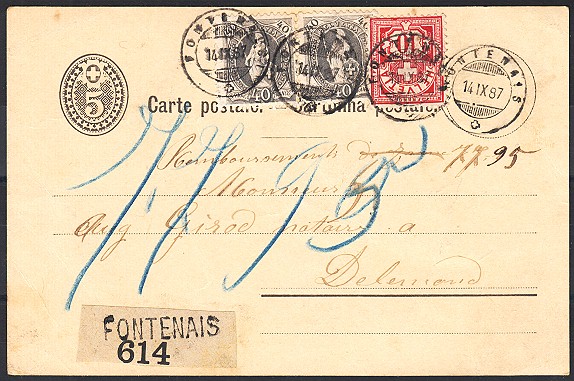 FONTENAIS
14 IX 87
40 40
10
FONTENAIS
14 IX 87
5
Carte postale. Cartolina postale.
Remboursement de 77.95
Monsieur
Aug Girod notaire a
Delemond
77 95
FONTENAIS
614